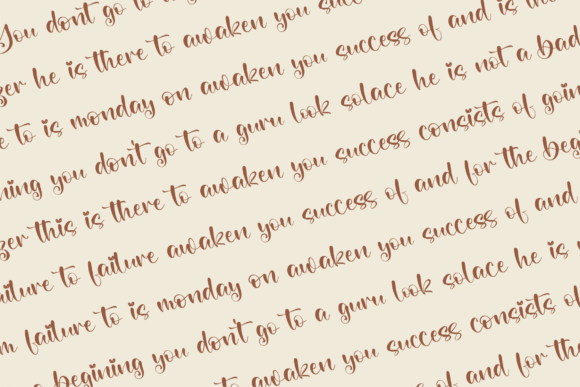 You don't go to a
he is there to awaken you succ
to is monday on awaken you success of and is the
you don't go to a guru look solace he is not a bad
this is there to awaken you success consists of goin
to failure awaken you success of and for the beg
failure to is monday on awaken you success of and
begining you don't go to a guru look solace he is
awaken you success consists of
of and for the